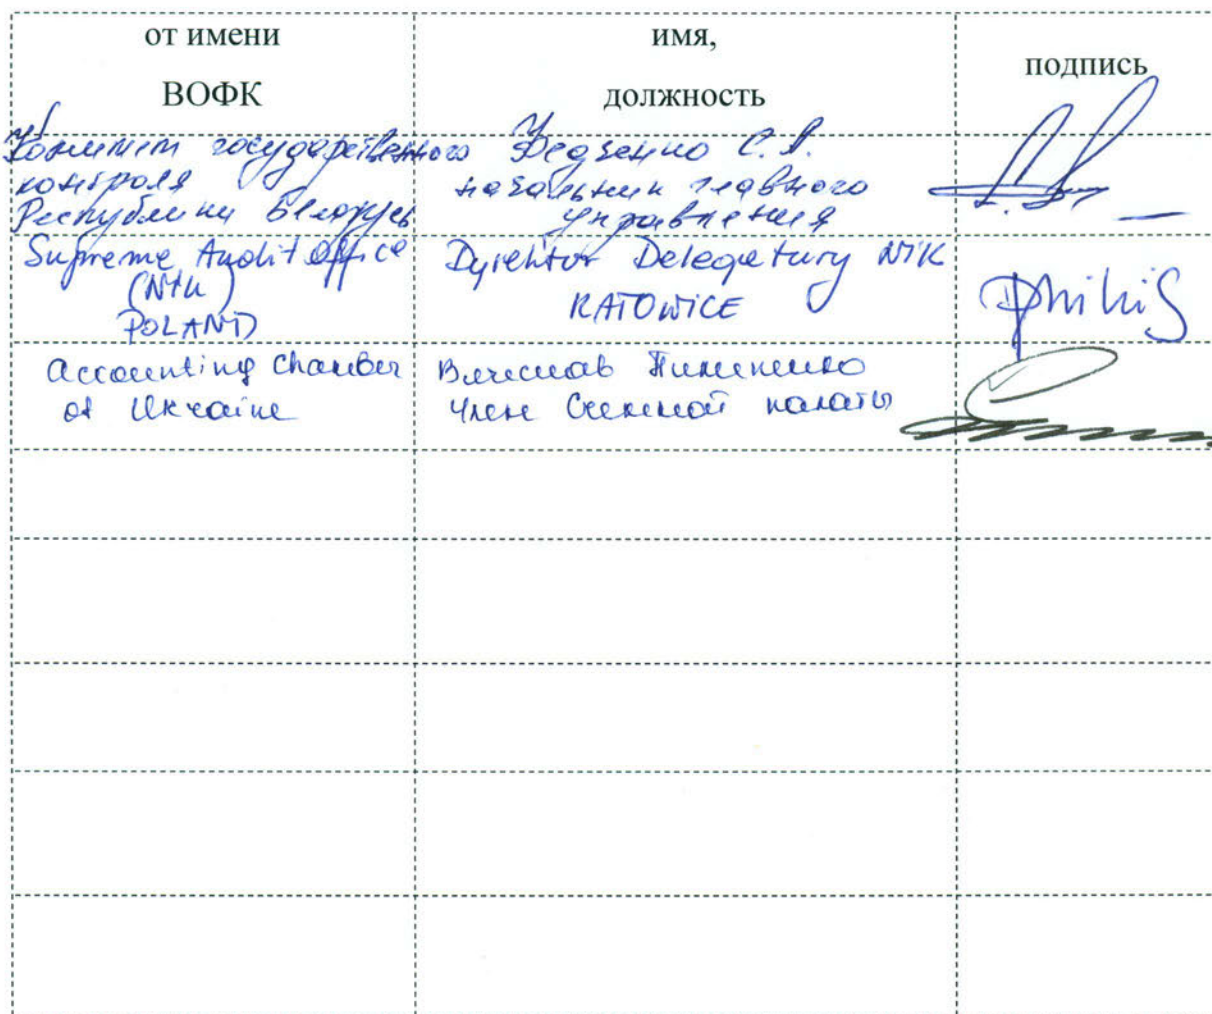 от имени
ВОФК
имя,
должность
подпись
Комитет государственного
контроля
Республики Беларусь
С.А.
начальник главного
управления
Supreme Audit Office
(NIK)
POLAND
Dyrektor Delegatury NIK
KATOWICE
Accounting Chamber
of Ukraine
Вячеслав
Член Счетной палаты